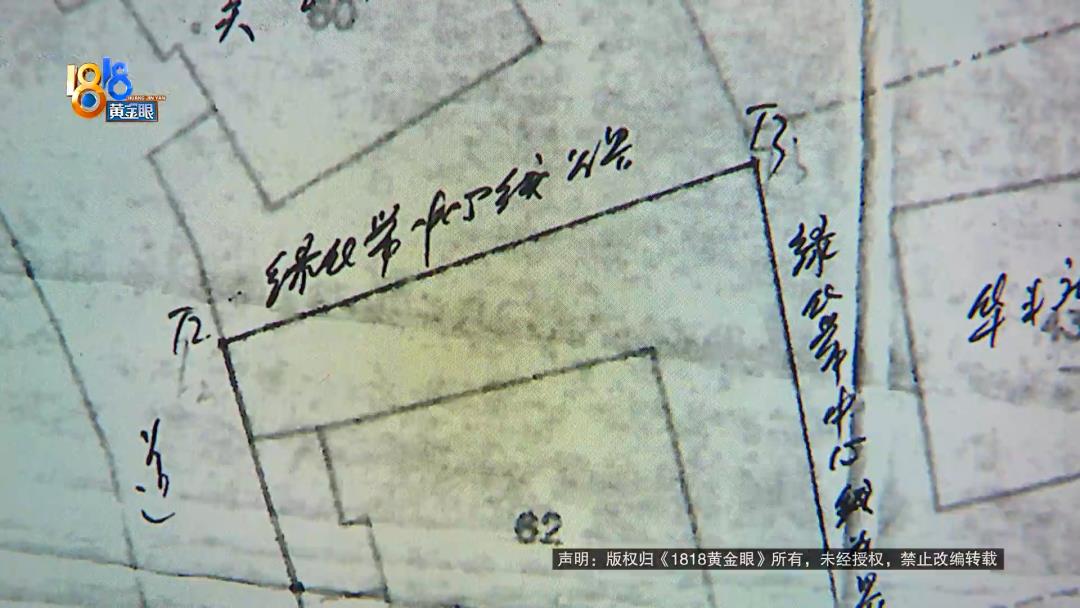 夫
60
1818
HUANG JIN YAN
黄金眼
T3
绿化带中心线为界
T2
绿化带中心线为界
华
62
声明：版权归《1818黄金眼》所有，未经授权，禁止改编转载